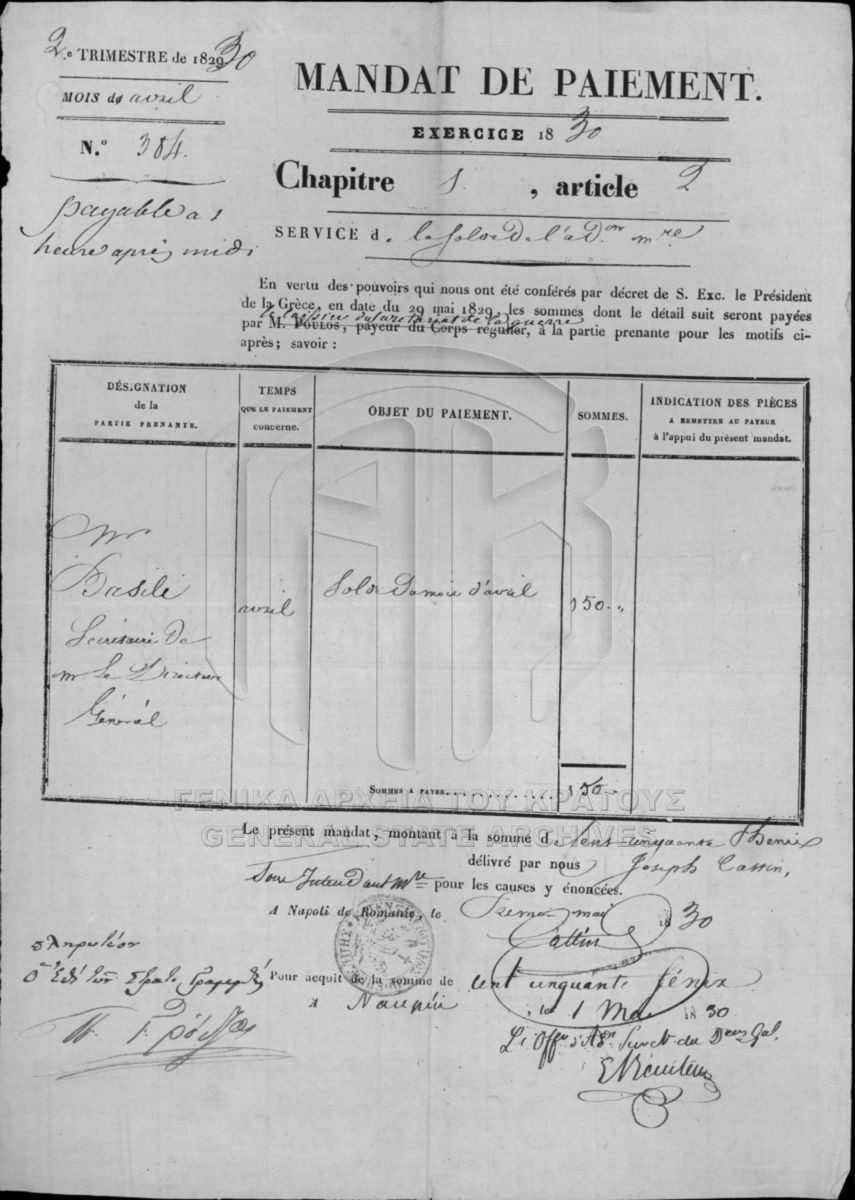 2.e TRIMESTRE de 1829 30
MOIS de avril
N.° 384.
payable a 1
heure après midi
MANDAT DE PAIEMENT.
EXERCICE 18 30
Chapitre 1. , article 2
SERVICE d. la solde de l'adon mre
En vertu des pouvoirs qui nous ont été conférés par décret de S. Exc. le Président
de la Grèce, en date du 29 mai 1829, les sommes dont le détail suit seront payées
le caissier du secretariat de la guerre
par M. Poulos, payeur du Corps régulier, à la partie prenante pour les motifs ci-
après; savoir :
DÉSIGNATION
de la
PARTIE PRENANTE.
TEMPS
QUE LE PAIEMENT
concerne.
OBJET DU PAIEMENT.
SOMMES.
INDICATION DES PIÈCES
A REMETTRE AU PAYEUR
à l'appui du présent mandat.
Mr
Basile
Secrétaire de
mr Le Directeur
Général
avril
Solde du mois d'avril
150 "
SOMMES A PAYER
150
ΓΕΝΙΚΑ ΑΡΧΕΙΑ ΤΟΥ ΚΡΑΤΟΥΣ
GENERAL STATE ARCHIVES
Le présent mandat, montant à la somme de Cent cinquante Phenix
délivré par nous Joseph Cassin,
Sous Intendant Mre pour les causes y énoncées.
A Napoli de Romanie, le mai 18 30
Cassin
πληρωτέον
Pour acquit de la somme de cent cinquante fénix
A Nauplie, le 1 Mai 1830